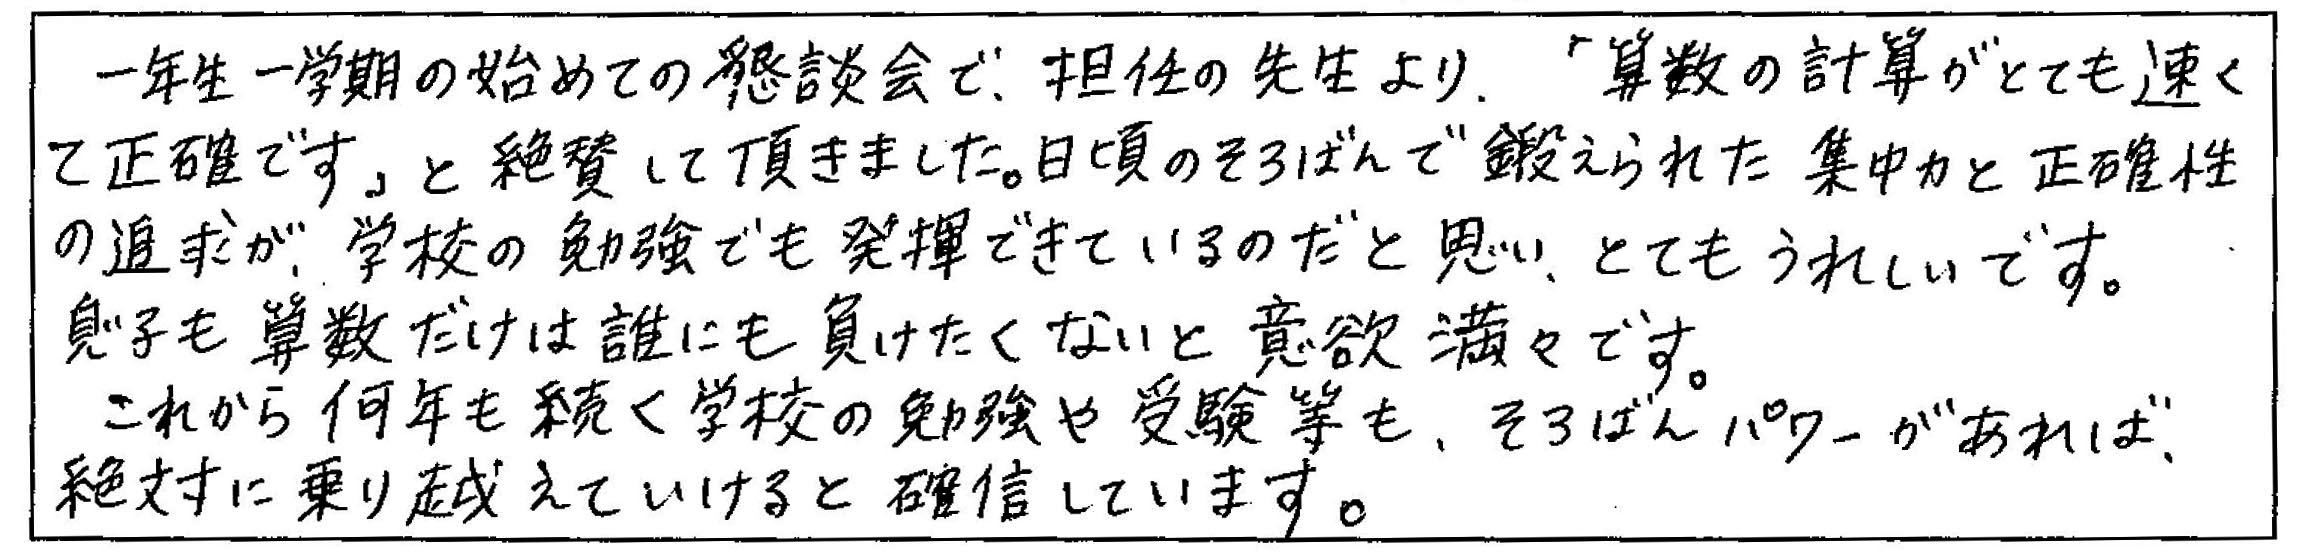 一年生一学期の始めての懇談会で、担任の先生より、「算数の計算がとても速く
て正確です」と絶賛して頂きました。日頃のそろばんで鍛えられた集中力と正確性
の追求が、学校の勉強でも発揮できているのだと思い、とてもうれしいです。
息子も算数だけは誰にも負けたくないと意欲満々です。
これから何年も続く学校の勉強や受験等も、そろばんパワーがあれば、
絶対に乗り越えていけると確信しています。